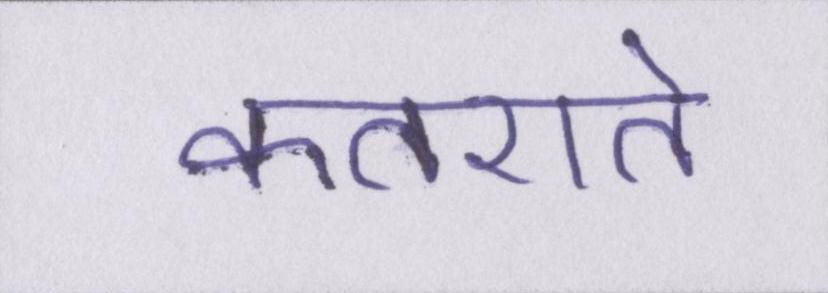 कतराते